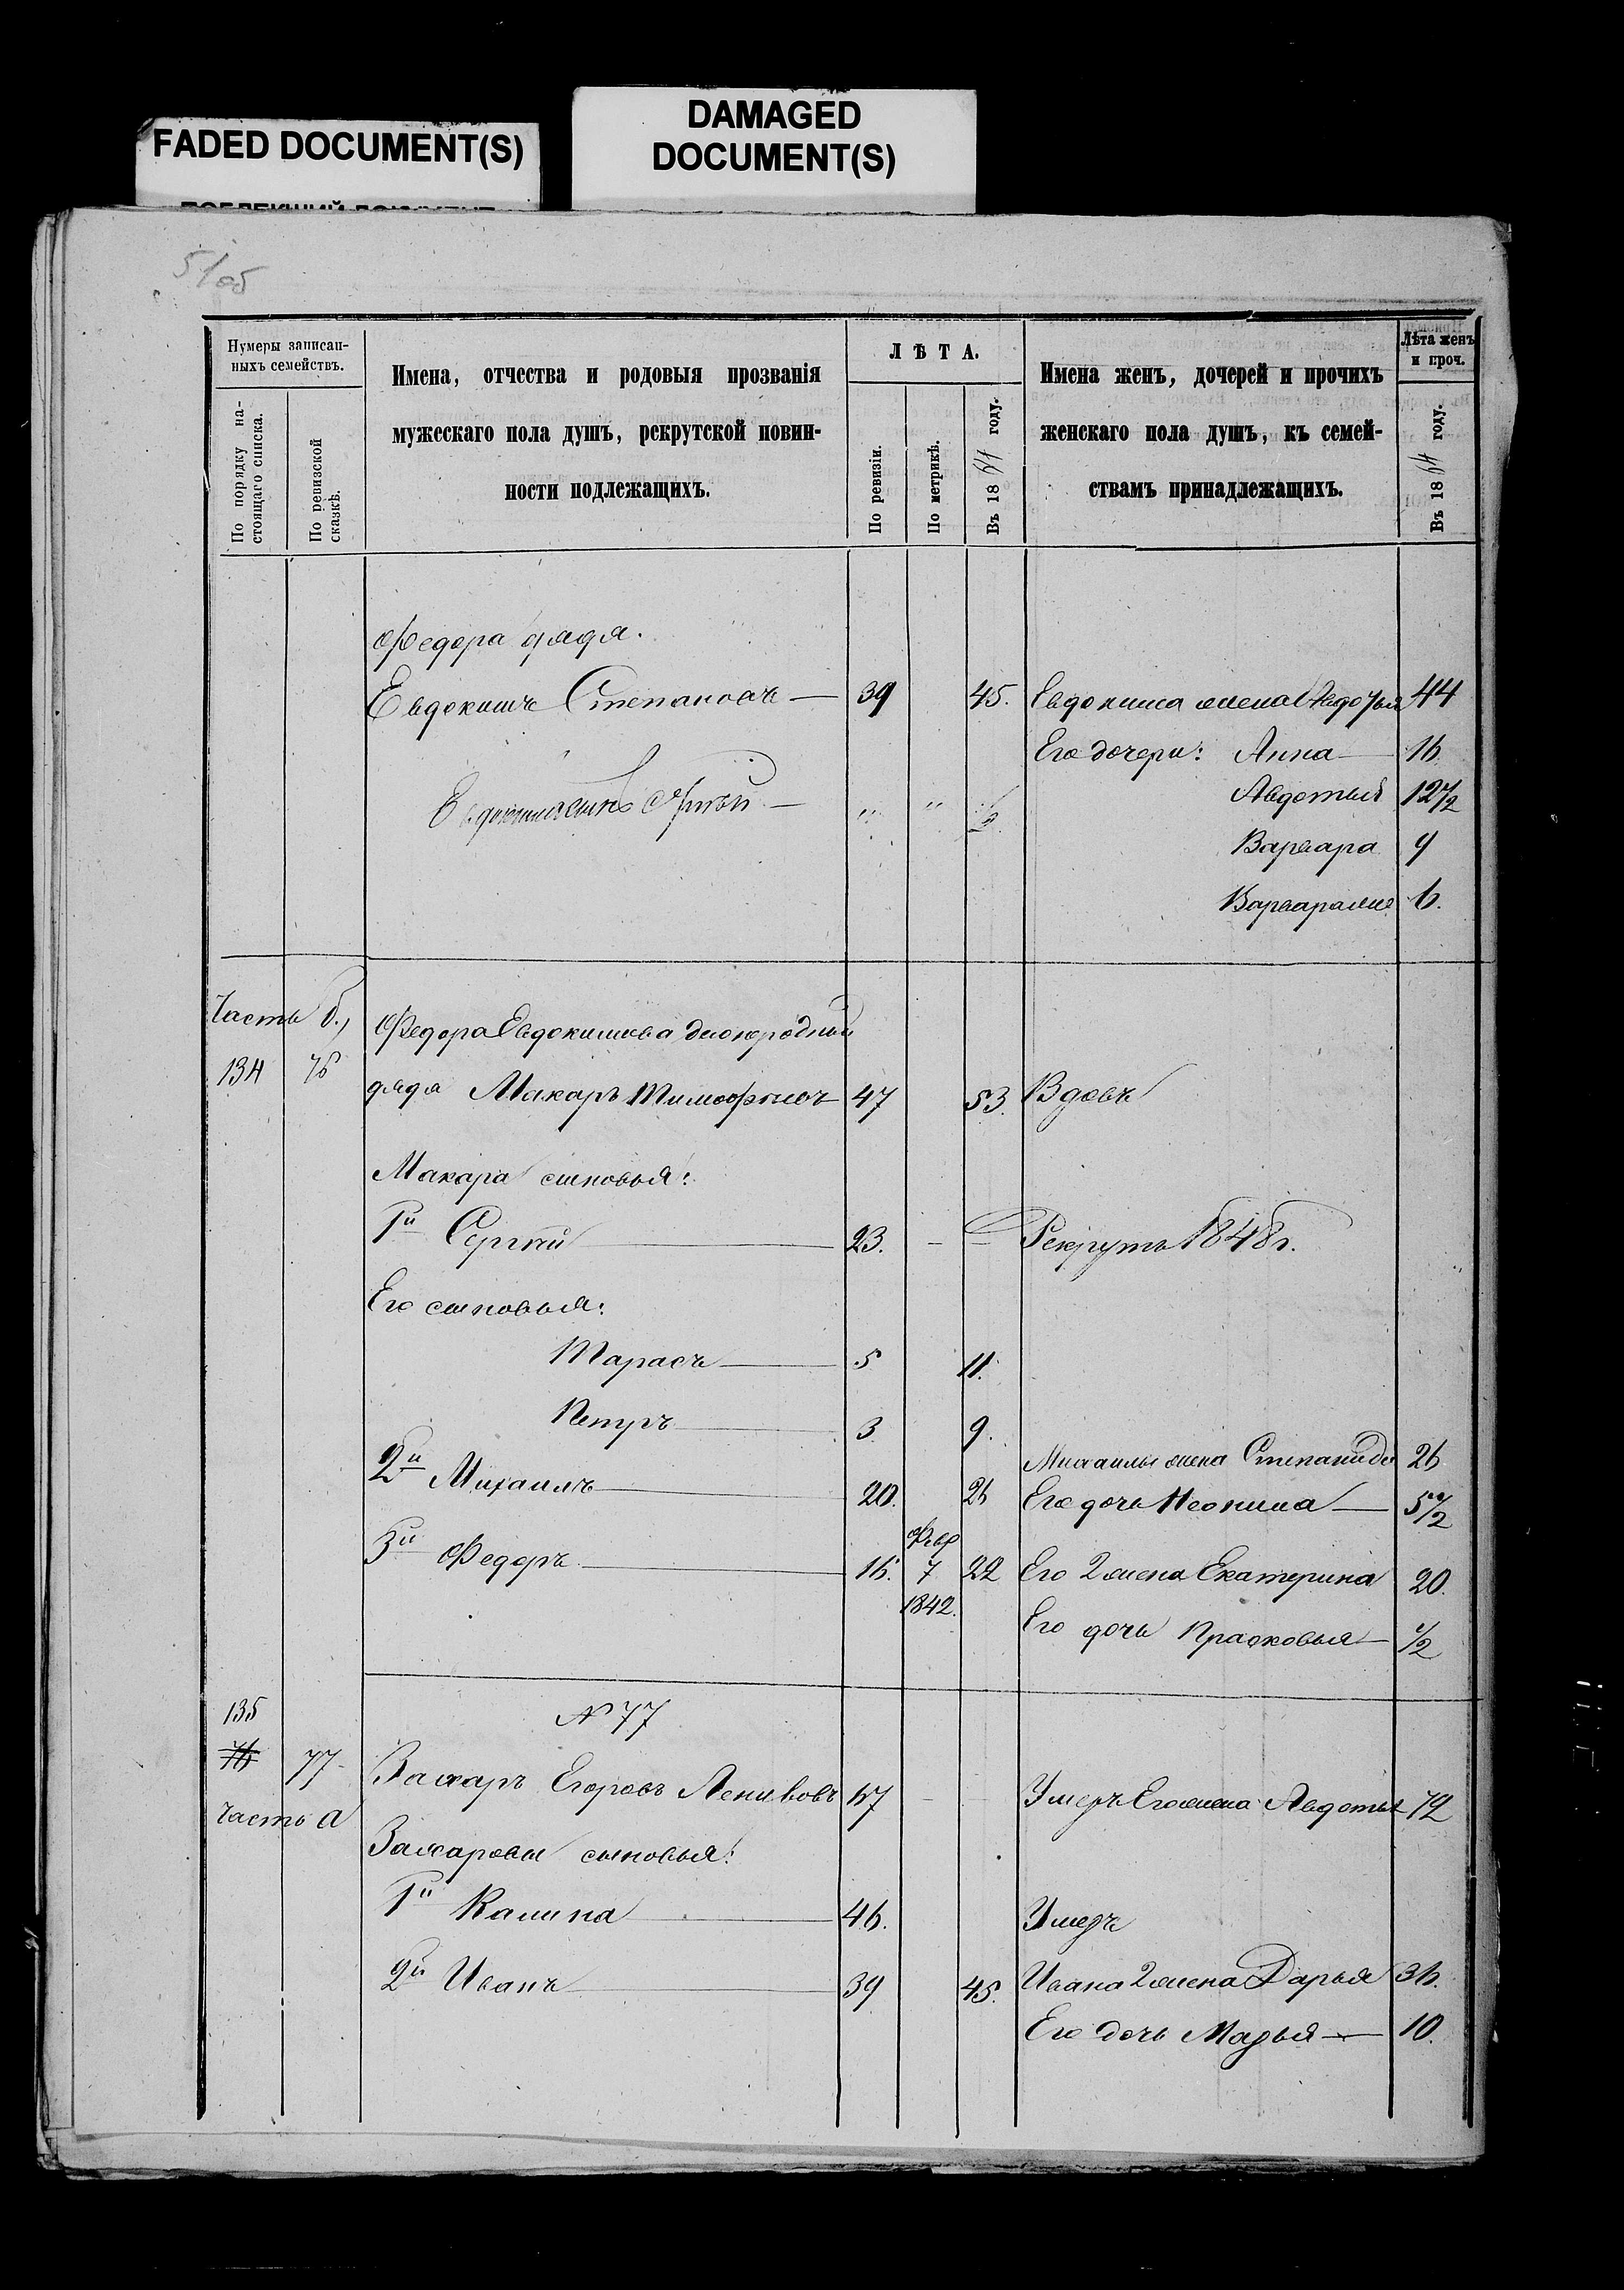 FADED DOCUMENT(S)
DAMAGED
DOCUMENT(S)
51об
Нумеры записан-
ныхъ семействъ.
По порядку на-
стоящаго списка.
По ревизской
сказкѣ.
Имена, отчества и родовыя прозванія
мужескаго пола душъ, рекрутской повин-
ности подлежащихъ.
ЛѢТА.
По ревизіи.
По метрикѣ.
Въ 1864 году.
Имена женъ, дочерей и прочихъ
женскаго пола душъ, къ семей-
ствамъ принадлежащихъ.
Лѣта женъ
и проч.
Въ 1864 году.
Федора дядя.
Евдокимъ Степановъ — 39 45. Евдокима жена Федотья 44
Его дочери: Анна — 16
Авдотья 12 1/2
Варвара 9
Варвара же 6.
Часть б.,
134 76
Федора Евдокимова двоюродный
дядя Макаръ Тимофѣевъ 47 53. Вдовъ
Макара сыновья:
1й Сергѣй — 23. — — Рекрутъ 1848 г.
Его сыновья:
Тарасъ — 5 11.
Петръ — 3 9.
Михаилы жена Степанида 26
2й Михаилъ — 20. 26 Его дочь Неонила — 5 1/2
3й Федоръ — 16. Фев 7 1842. 22 Его 2 жена Екатерина 20.
Его дочь Прасковья — 1/2
135
№ 77
76 77
Часть а
Захаръ Егоровъ Ленивовъ 67 — — Умеръ Его жена Авдотья 72
Захаровы сыновья:
1й Калина — 46. Умеръ
2й Иванъ — 39 45. Ивана 2 жена Дарья 36.
Его дочь Марья — 10.